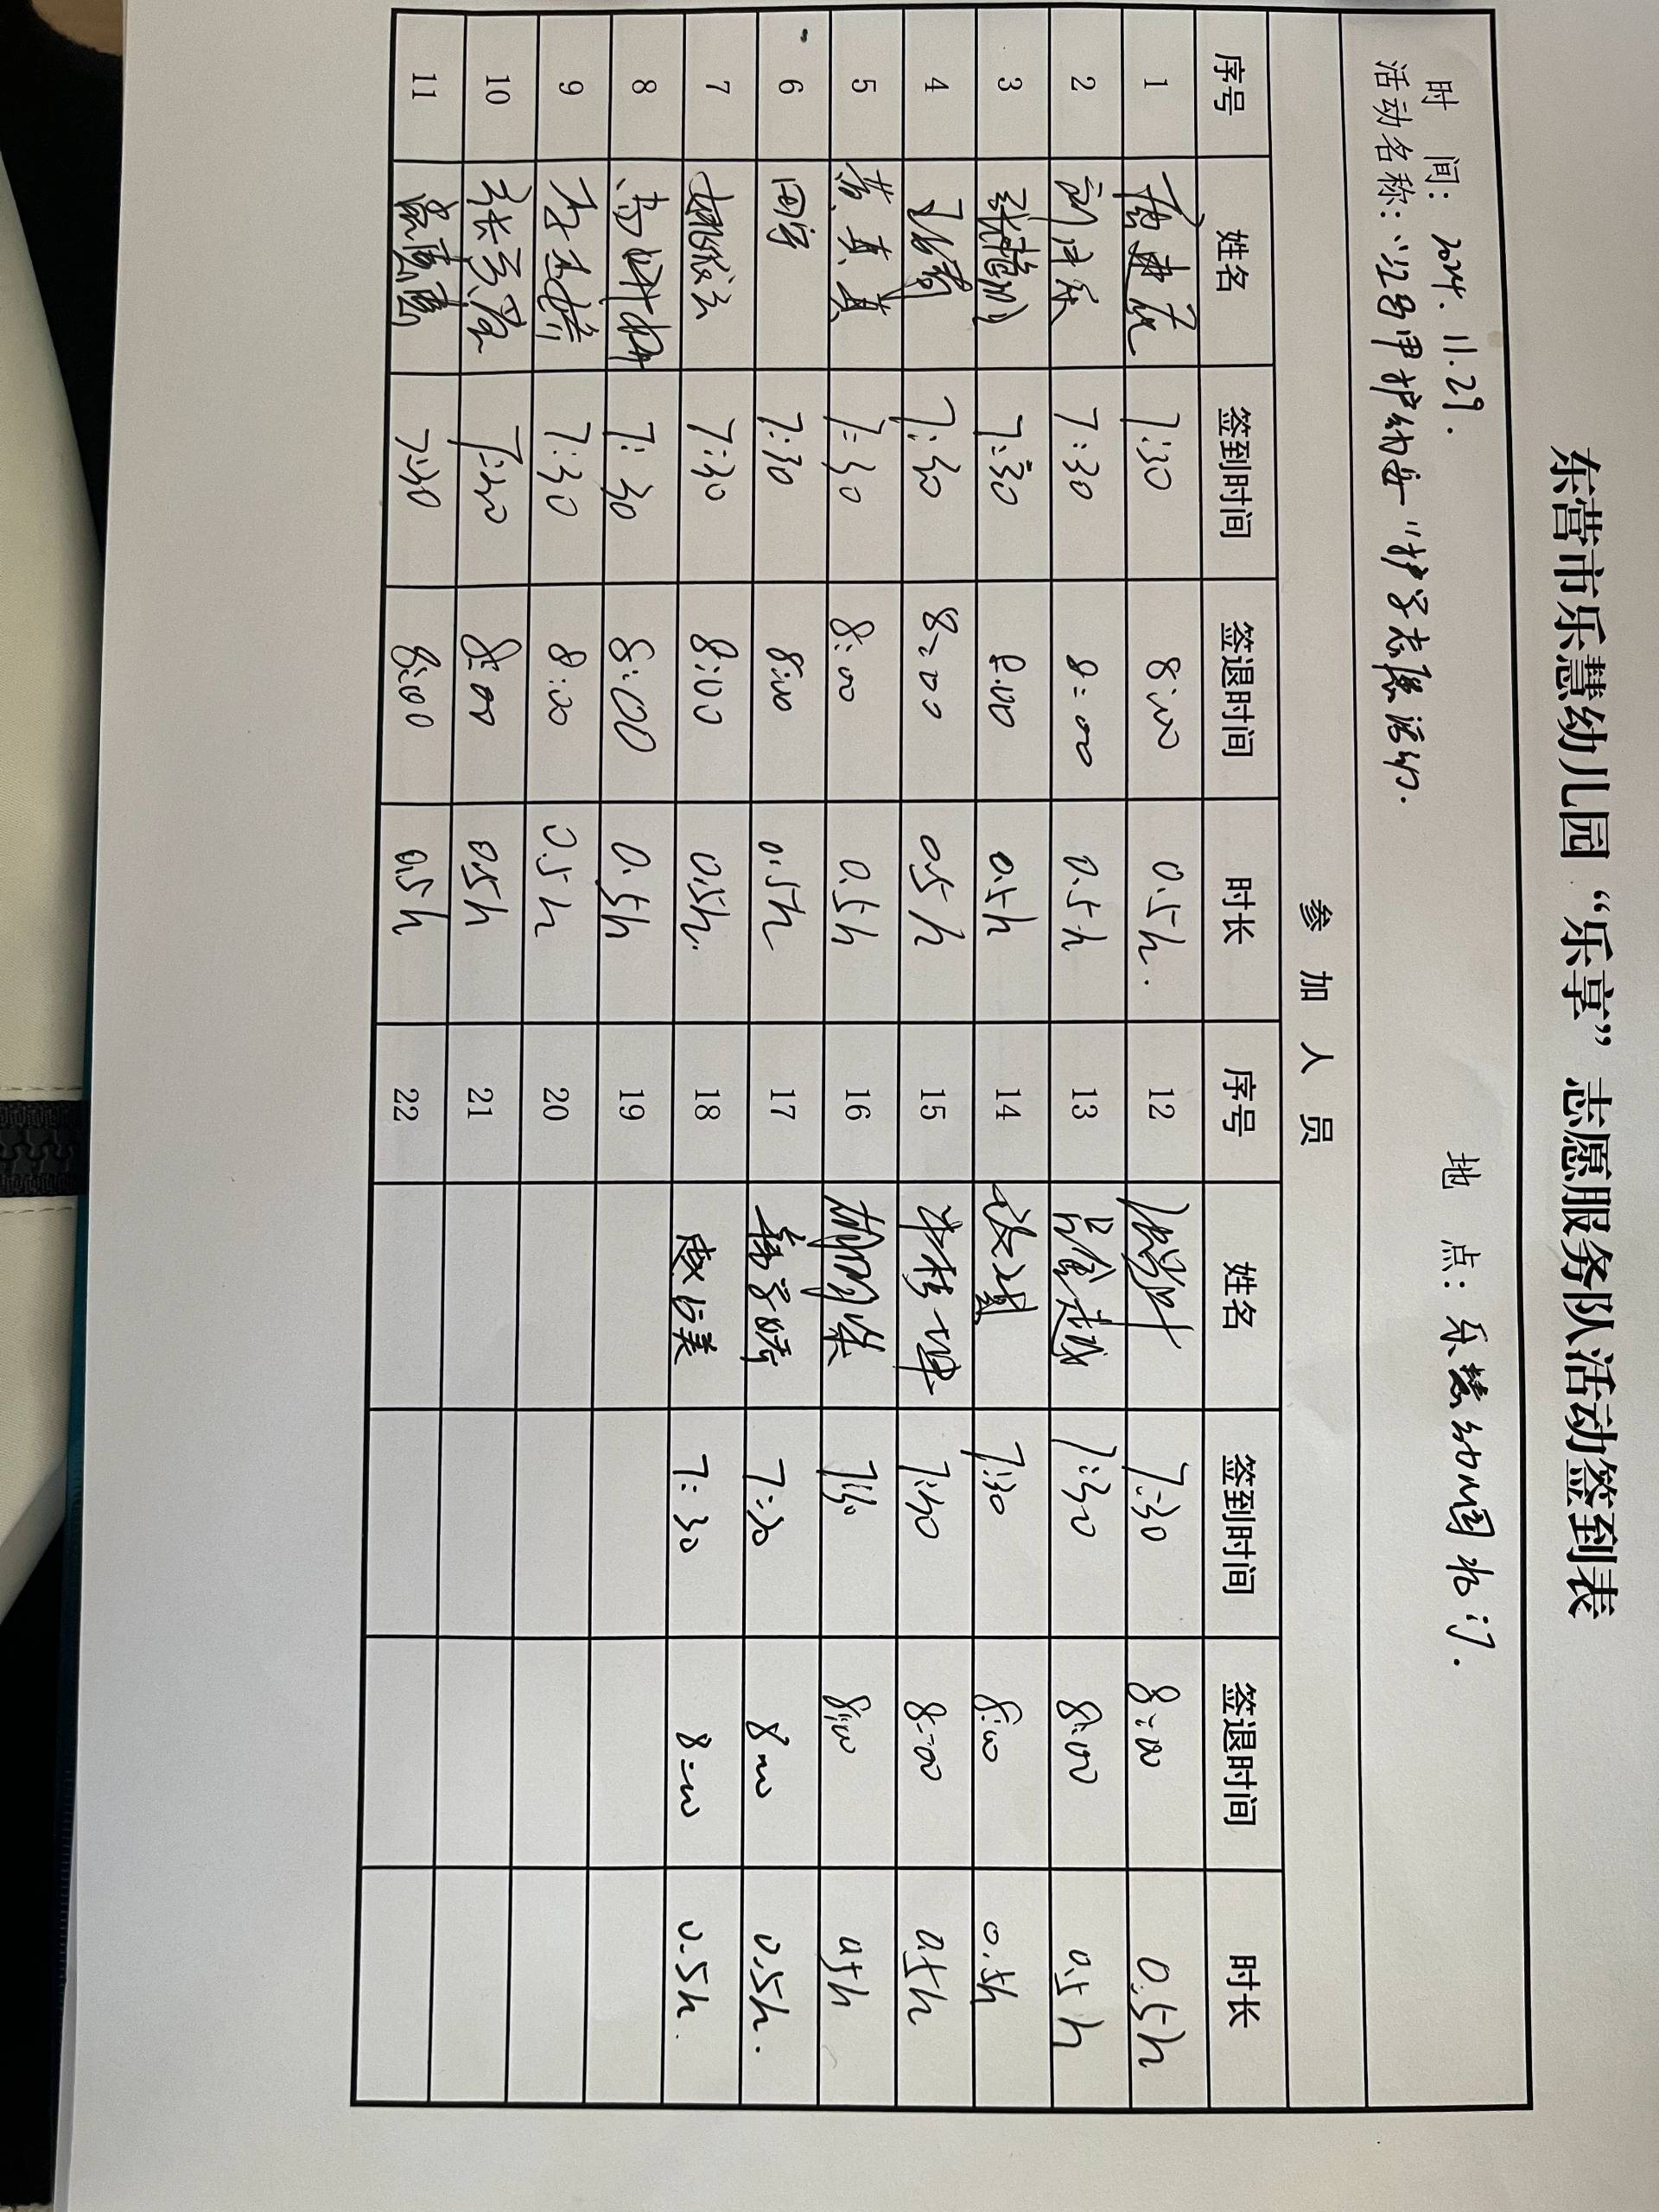 东营市乐慧幼儿园“乐享”志愿服务队活动签到表
时 间：2024.11.29. 地 点：乐慧幼儿园北门.
活动名称：“红马甲护幼安”护学志愿活动.
参 加 人 员
序号 姓名 签到时间 签退时间 时长 序号 姓名 签到时间 签退时间 时长
1 7:30 8:00 0.5h. 12 7:30 8:00 0.5h
2 7:30 8:00 0.5h 13 吕金越 7:30 8:00 0.5h
3 7:30 8:00 0.5h 14 7:30 8:00 0.5h
4 7:30 8:00 0.5h 15 7:30 8:00 0.5h
5 黄真真 7:30 8:00 0.5h 16 7:30 8:00 0.5h
6 田宁 7:30 8:00 0.5h 17 7:30 8:00 0.5h.
7 7:30 8:00 0.5h. 18 7:30 8:00 0.5h.
8 7:30 8:00 0.5h 19
9 7:30 8:00 0.5h 20
10 7:30 8:00 0.5h 21
11 7:30 8:00 0.5h 22